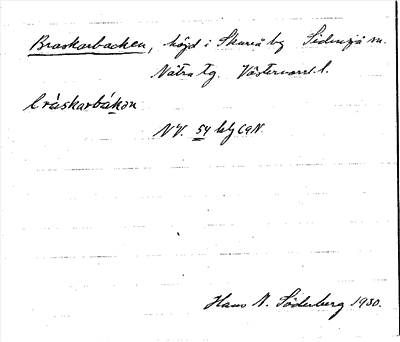 Braskarbacken, höjd i Skureå by Sidensjö sn.
Nätra tg. Västernorrl. l.
bráskarbákən
NV. 54 blj C9N.
Hans N. Söderberg 1930.